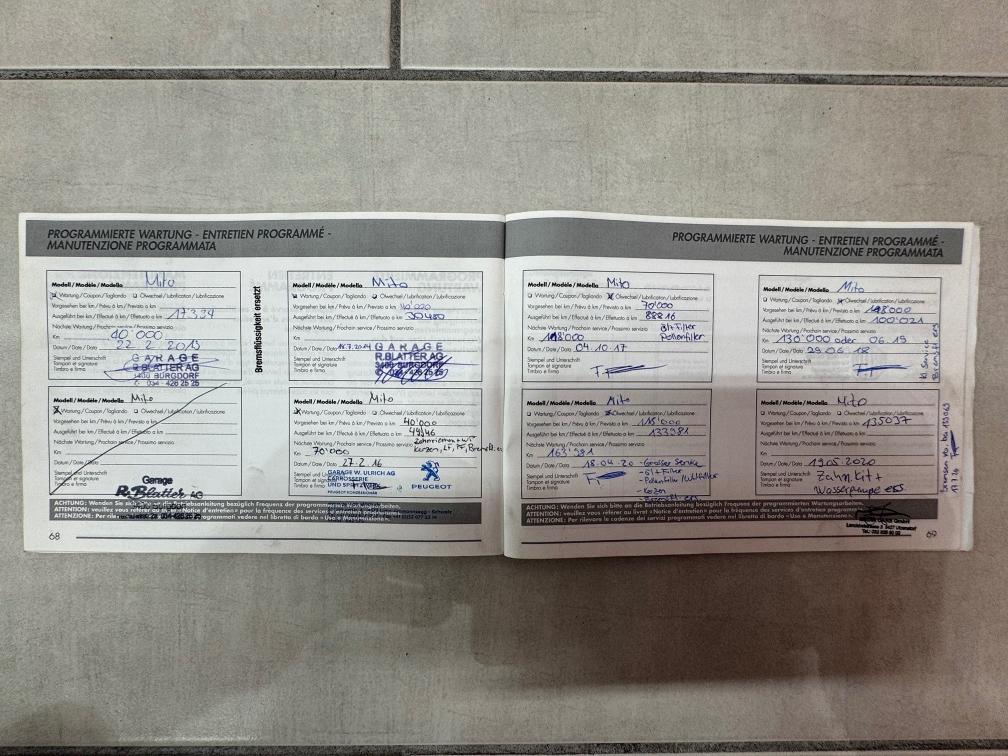 PROGRAMMIERTE WARTUNG - ENTRETIEN PROGRAMMÉ -
MANUTENZIONE PROGRAMMATA
Modell / Modèle / Modello: Mito
Wartung / Coupon / Tagliando Ölwechsel / Lubrification / Lubrificazione
Vorgesehen bei km / Prévu à km / Previsto a km
Ausgeführt bei km / Effectué à km / Effettuato a km 17334
Nächste Wartung / Prochain service / Prossimo servizio
Km 40'000
Datum / Date / Data 22. 2. 2013
Stempel und Unterschrift
Tampon et signature
Timbro e firma
GARAGE
R.BLATTER AG
3400 BURGDORF
Bremsflüssigkeit ersetzt
Modell / Modèle / Modello: Mito
Wartung / Coupon / Tagliando Ölwechsel / Lubrification / Lubrificazione
Vorgesehen bei km / Prévu à km / Previsto a km
Ausgeführt bei km / Effectué à km / Effettuato a km 30480
Nächste Wartung / Prochain service / Prossimo servizio
Km
Datum / Date / Data 18.7.2014
Stempel und Unterschrift
Tampon et signature
Timbro e firma
GARAGE
R.BLATTER AG
3400 BURGDORF
Modell / Modèle / Modello: Mito
Wartung / Coupon / Tagliando Ölwechsel / Lubrification / Lubrificazione
Vorgesehen bei km / Prévu à km / Previsto a km
Ausgeführt bei km / Effectué à km / Effettuato a km
Nächste Wartung / Prochain service / Prossimo servizio
Km
Datum / Date / Data
Stempel und Unterschrift
Tampon et signature
Timbro e firma
Garage
R. Blatter AG
Modell / Modèle / Modello: Mito
Wartung / Coupon / Tagliando Ölwechsel / Lubrification / Lubrificazione
Vorgesehen bei km / Prévu à km / Previsto a km 40'000
Ausgeführt bei km / Effectué à km / Effettuato a km
Nächste Wartung / Prochain service / Prossimo servizio
Km 70'000
Datum / Date / Data 27. 2. 16
Stempel und Unterschrift
Tampon et signature
Timbro e firma
GARAGE W. ULRICH AG
CARROSSERIE
PEUGEOT
ACHTUNG: Wenden Sie sich bitte an die Betriebsanleitung bezüglich Frequenz der programmierten Wartungsarbeiten.
ATTENTION: veuillez vous référer au livret «Notice d'entretien» pour la fréquence des services d'entretien programmés
ATTENZIONE: Per rilevare le cadenze dei servizi programmati vedere nel libretto di bordo «Uso e Manutenzione».
68
PROGRAMMIERTE WARTUNG - ENTRETIEN PROGRAMMÉ -
MANUTENZIONE PROGRAMMATA
Modell / Modèle / Modello: Mito
Wartung / Coupon / Tagliando Ölwechsel / Lubrification / Lubrificazione
Vorgesehen bei km / Prévu à km / Previsto a km 70'000
Ausgeführt bei km / Effectué à km / Effettuato a km 88816
Nächste Wartung / Prochain service / Prossimo servizio
Pollenfilter
Km
Datum / Date / Data 04.10.17
Stempel und Unterschrift
Tampon et signature
Timbro e firma
Modell / Modèle / Modello: Mito
Wartung / Coupon / Tagliando Ölwechsel / Lubrification / Lubrificazione
Vorgesehen bei km / Prévu à km / Previsto a km
Ausgeführt bei km / Effectué à km / Effettuato a km 100'021
Nächste Wartung / Prochain service / Prossimo servizio
Km 130'000 oder 06.19
Datum / Date / Data 29.06.18
Stempel und Unterschrift
Tampon et signature
Timbro e firma
Modell / Modèle / Modello: Mito
Wartung / Coupon / Tagliando Ölwechsel / Lubrification / Lubrificazione
Vorgesehen bei km / Prévu à km / Previsto a km
Ausgeführt bei km / Effectué à km / Effettuato a km 133581
Nächste Wartung / Prochain service / Prossimo servizio
Km 163'581
Datum / Date / Data 18.04.20
- Grosser Service
Stempel und Unterschrift
Tampon et signature
Timbro e firma
- Öl+Filter
- Pollenfilter / Luftfilter
- Kerzen
Modell / Modèle / Modello: Mito
Wartung / Coupon / Tagliando Ölwechsel / Lubrification / Lubrificazione
Vorgesehen bei km / Prévu à km / Previsto a km
Ausgeführt bei km / Effectué à km / Effettuato a km 135037
Nächste Wartung / Prochain service / Prossimo servizio
Km
Datum / Date / Data 19.05.2020
Stempel und Unterschrift
Tampon et signature
Timbro e firma
Zahn.Kit +
Wasserpumpe ers
ACHTUNG: Wenden Sie sich bitte an die Betriebsanleitung bezüglich Frequenz der programmierten Wartungsarbeiten.
ATTENTION: veuillez vous référer au livret «Notice d'entretien» pour la fréquence des services d'entretien programmés
ATTENZIONE: Per rilevare le cadenze dei servizi programmati vedere nel libretto di bordo «Uso e Manutenzione».
69